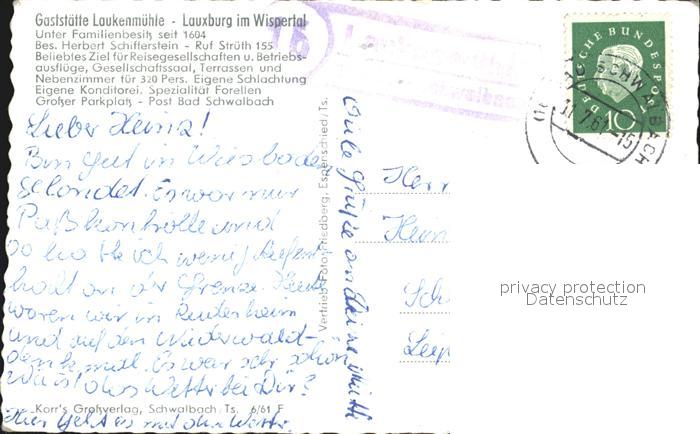 Gaststätte Laukenmühle - Lauxburg im Wispertal
Unter Familienbesitz seit 1604
Bes. Herbert Schifferstein - Ruf Strüth 155
Beliebtes Ziel für Reisegesellschaften u. Betriebs-
ausflüge, Gesellschaftssaal, Terrassen und
Nebenzimmer für 320 Pers. Eigene Schlachtung
Eigene Konditorei. Spezialität Forellen
Großer Parkplatz - Post Bad Schwalbach
Lieber Heinz!
Bin gut in Wiesbaden
gelandet. Es war nur
Paßkontrolle und
so hatte ich wenig Aufent-
halt an der Grenze. Heute
waren wir in Rüdesheim
und auf dem Niederwald-
denkmal. Es war sehr schön
Wie ist das Wetter bei Dir?
Hier geht es mit dem Wetter.
Viele Grüße an Deine Mutti
Vertrieb Foto-Friedberg, Espenschied/Ts.
Korr's Großverlag, Schwalbach/Ts. 6/61 F
16
DEUTSCHE BUNDESPOST
10
SCHWALBACH
Herr
Hein
Sch
Leip
privacy protection
Datenschutz